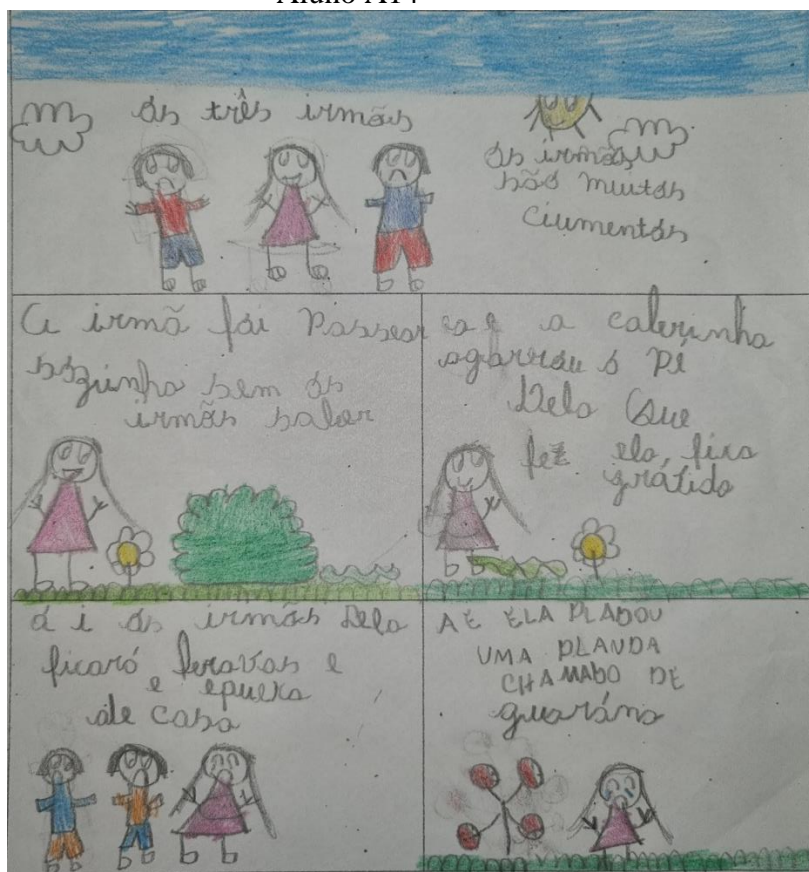 Aluno A14
Os três irmãos
Os irmãos
são muitos
ciumentos
A irmã foi Passear
sozinha sem os
irmãos saber
a cobrinha
agarrou o Pé
Dela Que
fez ela, fica
grávida
a i os irmãos Dela
ficaró bravos e
e epulsa
de casa
AE ELA PLADOU
UMA PLANDA
CHAMADO DE
guarána